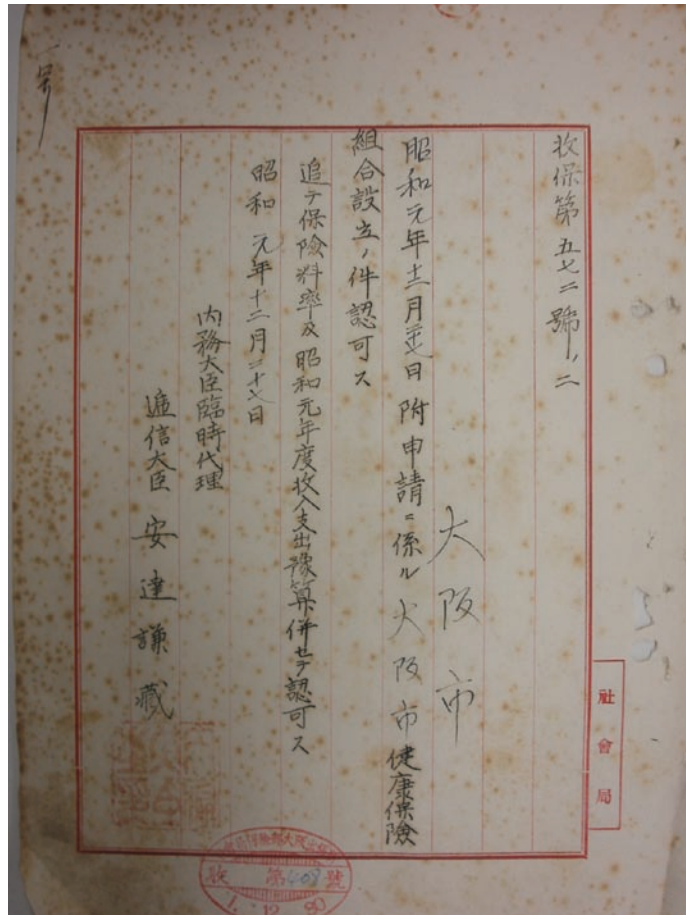 一号
收保第五七二號ノ二
大阪市
昭和元年十二月二十七日附申請ニ係ル大阪市健康保險
組合設立ノ件認可ス
追テ保險料率及昭和元年度收入支出豫算併セテ認可ス
昭和元年十二月二十七日
内務大臣臨時代理
逓信大臣 安達謙藏
社會局
收 第408號